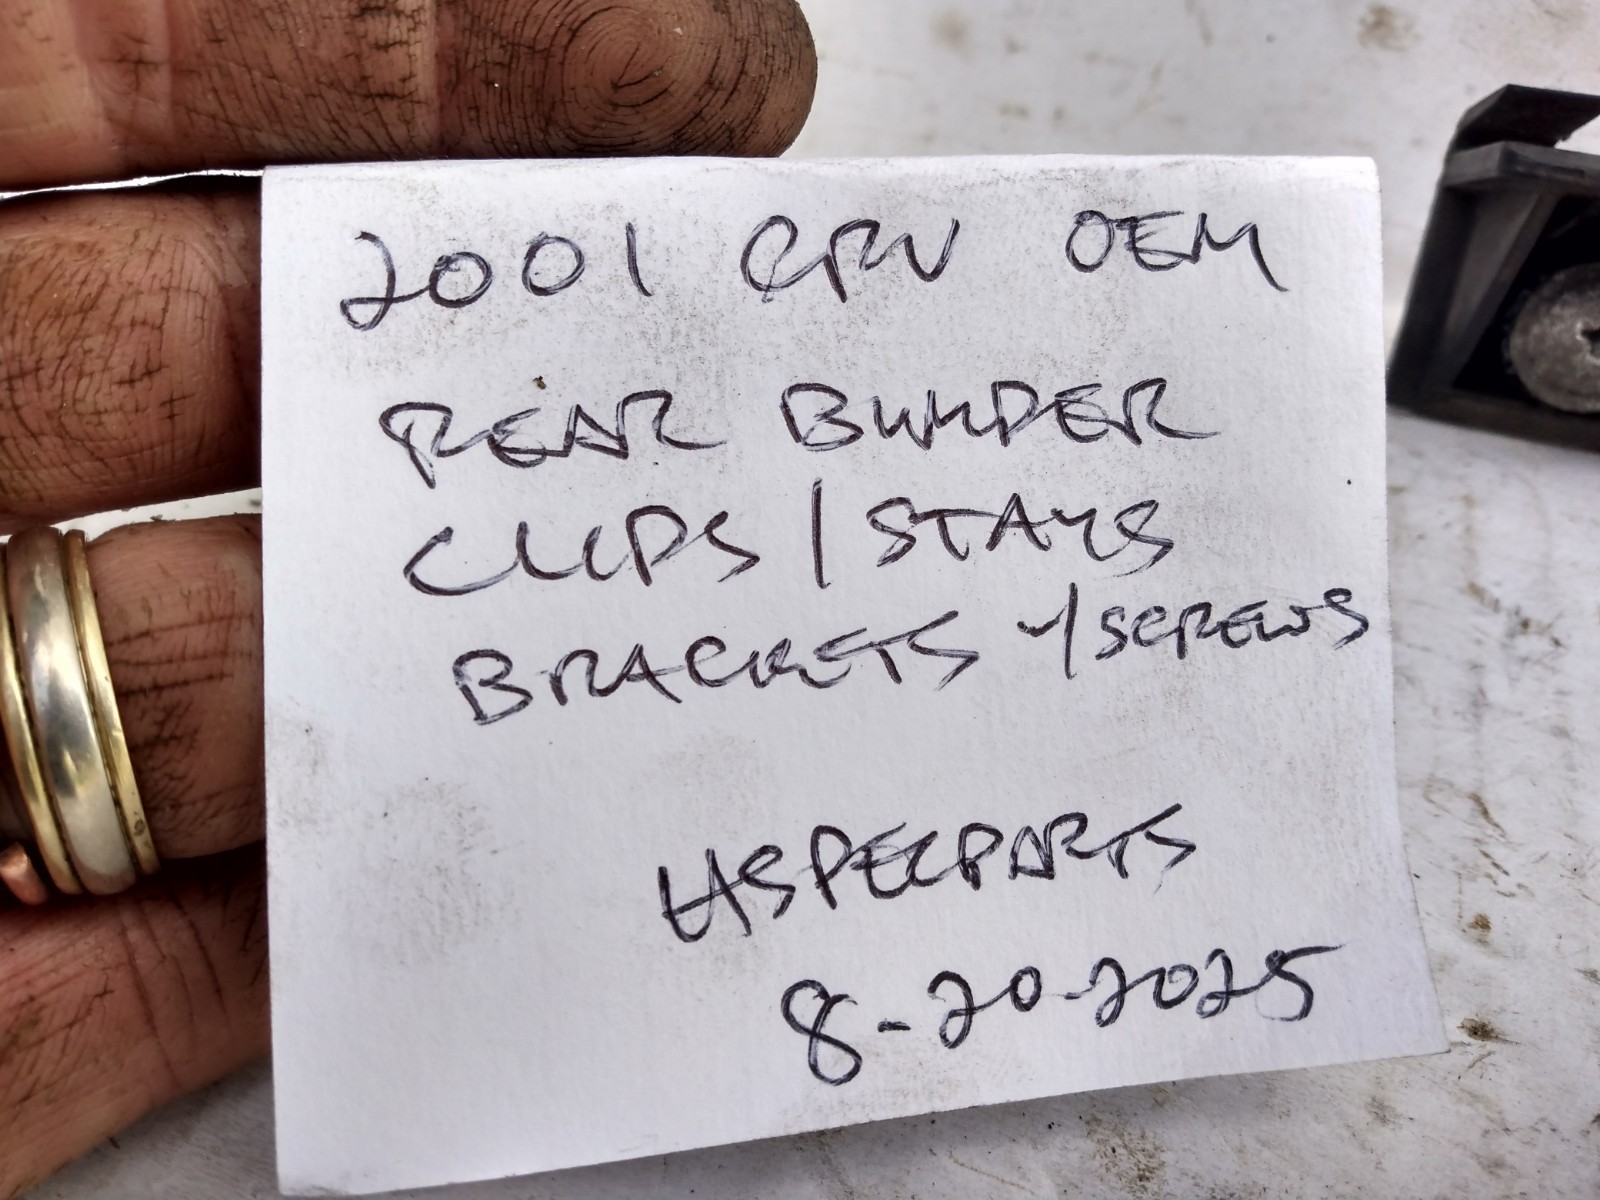 2001 CRV OEM
REAR BUMPER
CLIPS / STAYS
BRACKETS W/SCREWS
HSPECPARTS
8-20-2025